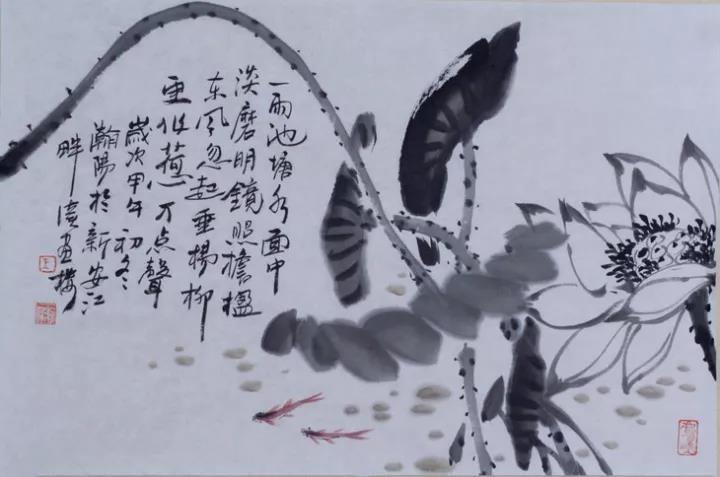 一雨池塘水面平
淡磨明鏡照檐楹
东风忽起垂楊柳
更作荷心万点聲
歲次甲午初冬
瀚陽於新安江
畔画樓